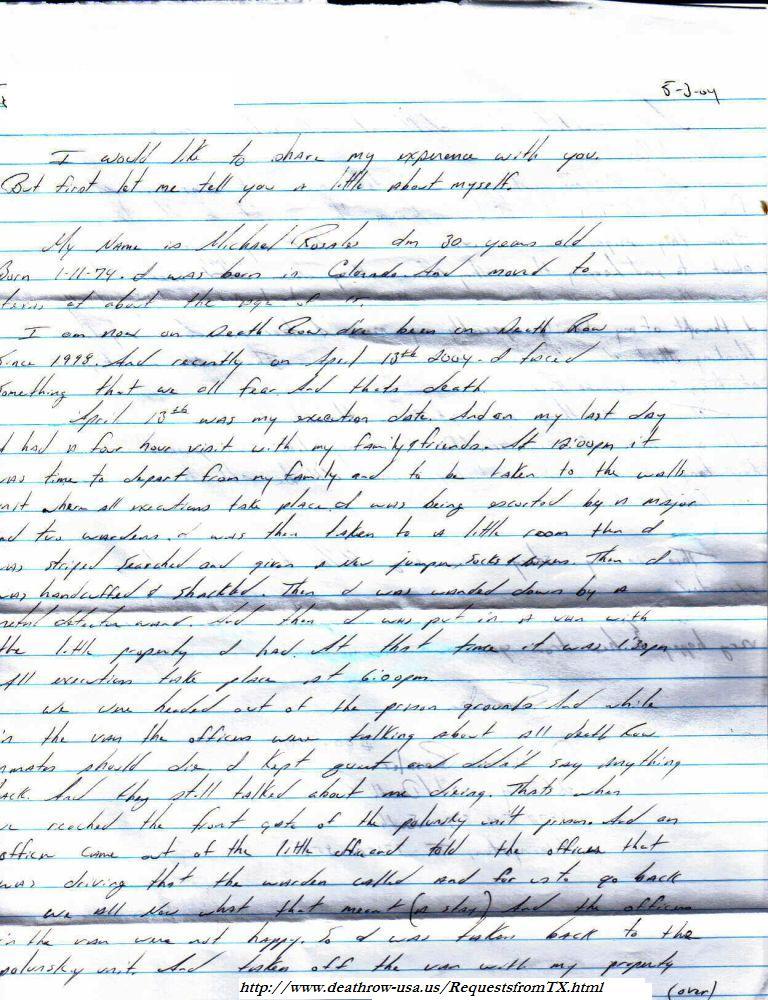 5-3-04
I would like to share my experence with you.
But first let me tell you a little about myself.
My Name is Michael Rosales Im 30 years old
Born 1-11-74. I was born in Colorado And moved to
texas at about the age of
I am now on Death Row. I've been on Death Row
Since 1998. And recently on April 13th 2004. I faced
Something that we all fear And thats death
April 13th was my execution date. And on my last day
I had a four hour visit with my family & friends. At 12:00pm it
was time to depart from my family and to be taken to the walls
unit where all executions take place. I was being escorted by a major
and two wardens. I was then taken to a little room then I
was striped Searched and given a New jumper, Socks & boxers. Then I
was handcuffed & shackled. Then I was wanded down by a
metal detector wand. And then I was put in a van with
the little property I had. At that time it was 1:30pm
All executions take place at 6:00pm
we were headed out of the prison grounds And while
in the van the officers were talking about all death Row
inmates should die. I Kept quiet and didn't say anything
back. And they still talked about me dieing. Thats when
we reached the front gate of the polunsky unit prison. And an
officer came out of the little office and told the officer that
was driving that the warden called and for us to go back
we all New what that meant (a stay) And the officers
in the van were not happy. So I was taken back to the
polunsky unit. And taken off the van with my property
(over)
http://www.deathrow-usa.us/RequestsfromTX.html